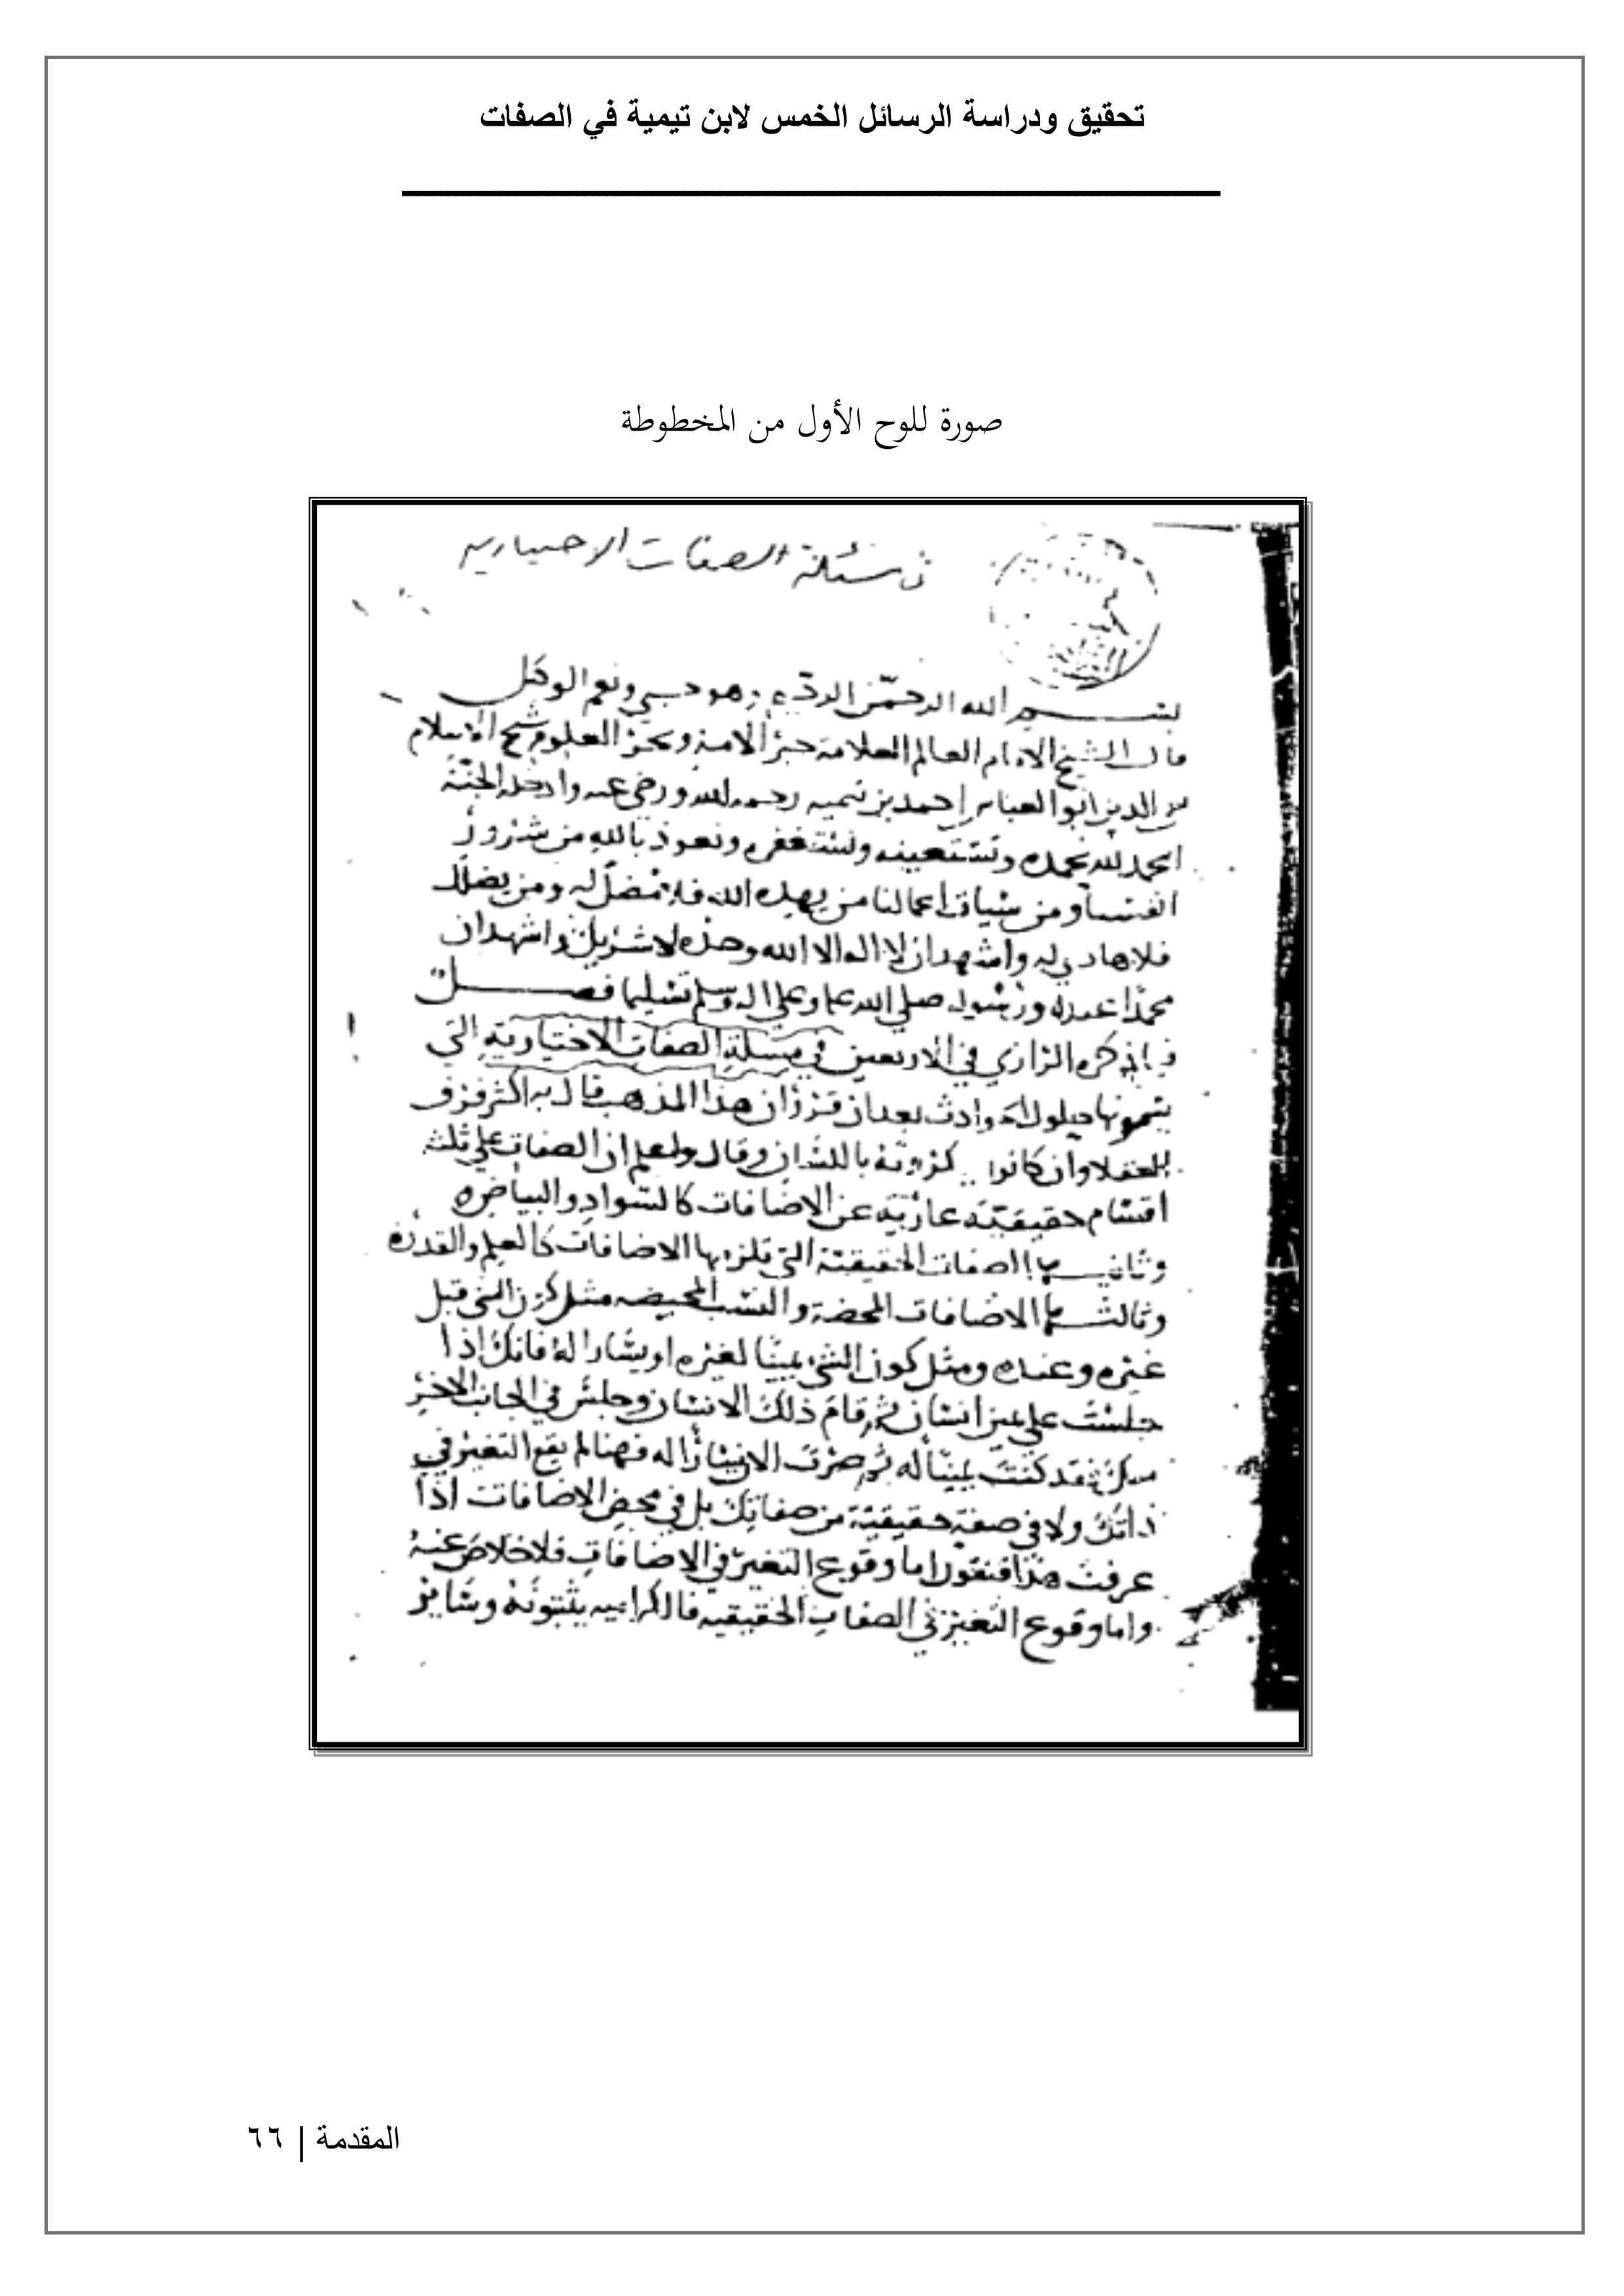 تحقيق ودراسة الرسائل الخمس لابن تيمية في الصفات
صورة للوح الأول من المخطوطة
في مسئلة الصفات الاختياريه
بسم الله الرحمن الرحيم وهو حسبي ونعم الوكيل
قال الشيخ الامام العالم العلامة حبر الامة وبحر العلوم شيخ الاسلام
الدين ابو العباس احمد بن تيميه رحمه الله ورضي عنه وادخله الجنة
الحمد لله نحمده ونستعينه ونستغفره ونعوذ بالله من شرور
انفسنا ومن سيات اعمالنا من يهده الله فلا مضل له ومن يضلل
فلا هادي له واشهد ان لا اله الا الله وحده لا شريك واشهد ان
محمدا عبده ورسوله صلى الله عليه وعلى اله وسلم تسليما فصل
فيما ذكره الرازي في الاربعين في مسئلة الصفات الاختيارية التي
يسمونها حلول الحوادث بعد ان قرر ان هذا المذهب قال به اكثر فرق
العقلا وان كانوا ينكرونه باللسان وقال واعلم ان الصفات على ثلثة
اقسام حقيقية عارية عن الاضافات كالسواد والبياض
وثانيها الصفات الحقيقية التي تلزمها الاضافات كالعلم والقدرة
وثالثها الاضافات المحضة والنسب المحيضه مثل كون الشي قبل
غيره وعنده ومثل كون الشي يمينا لغيره او يسارا له فانك اذا
جلست على يمين انسان ثم قام ذلك الانسان وجلس في الجانب الاخر
منك فقد كنت يمينا له ثم صرت الان يسارا له فهنا لم يقع التغير في
ذاتك ولا في صفة حقيقية من صفاتك بل في محض الاضافات اذا
عرفت هذا فنقول اما وقوع التغير في الاضافات فلا خلاص عنه
واما وقوع التغير في الصفات الحقيقيه فالكراميه يثبتونه وسائر
المقدمة | ٦٦